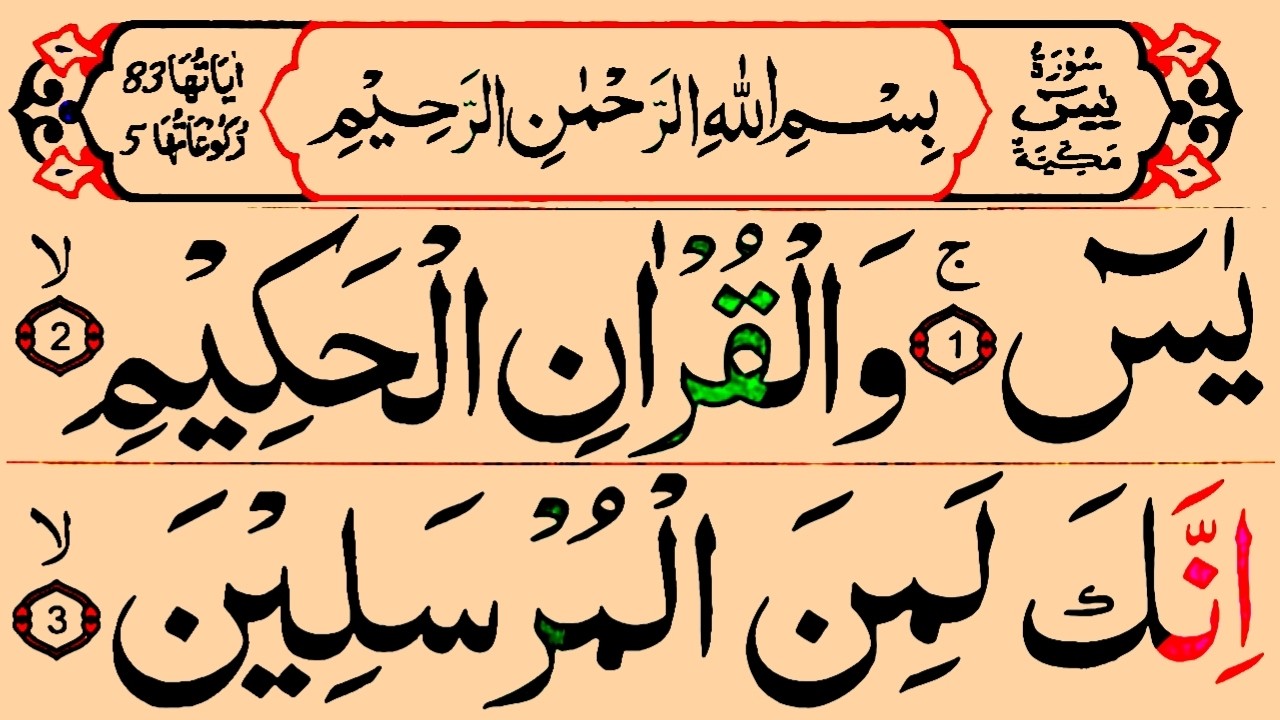 سُوْرَةُ
يٰسٓ
مَكِّيَّةٌ
بِسْمِ اللّٰهِ الرَّحْمٰنِ الرَّحِيْمِ
اٰيَاتُهَا 83
رُكُوْعَاتُهَا 5
يٰسٓ ج 1 وَالْقُرْاٰنِ الْحَكِيْمِ لا 2
اِنَّكَ لَمِنَ الْمُرْسَلِيْنَ لا 3